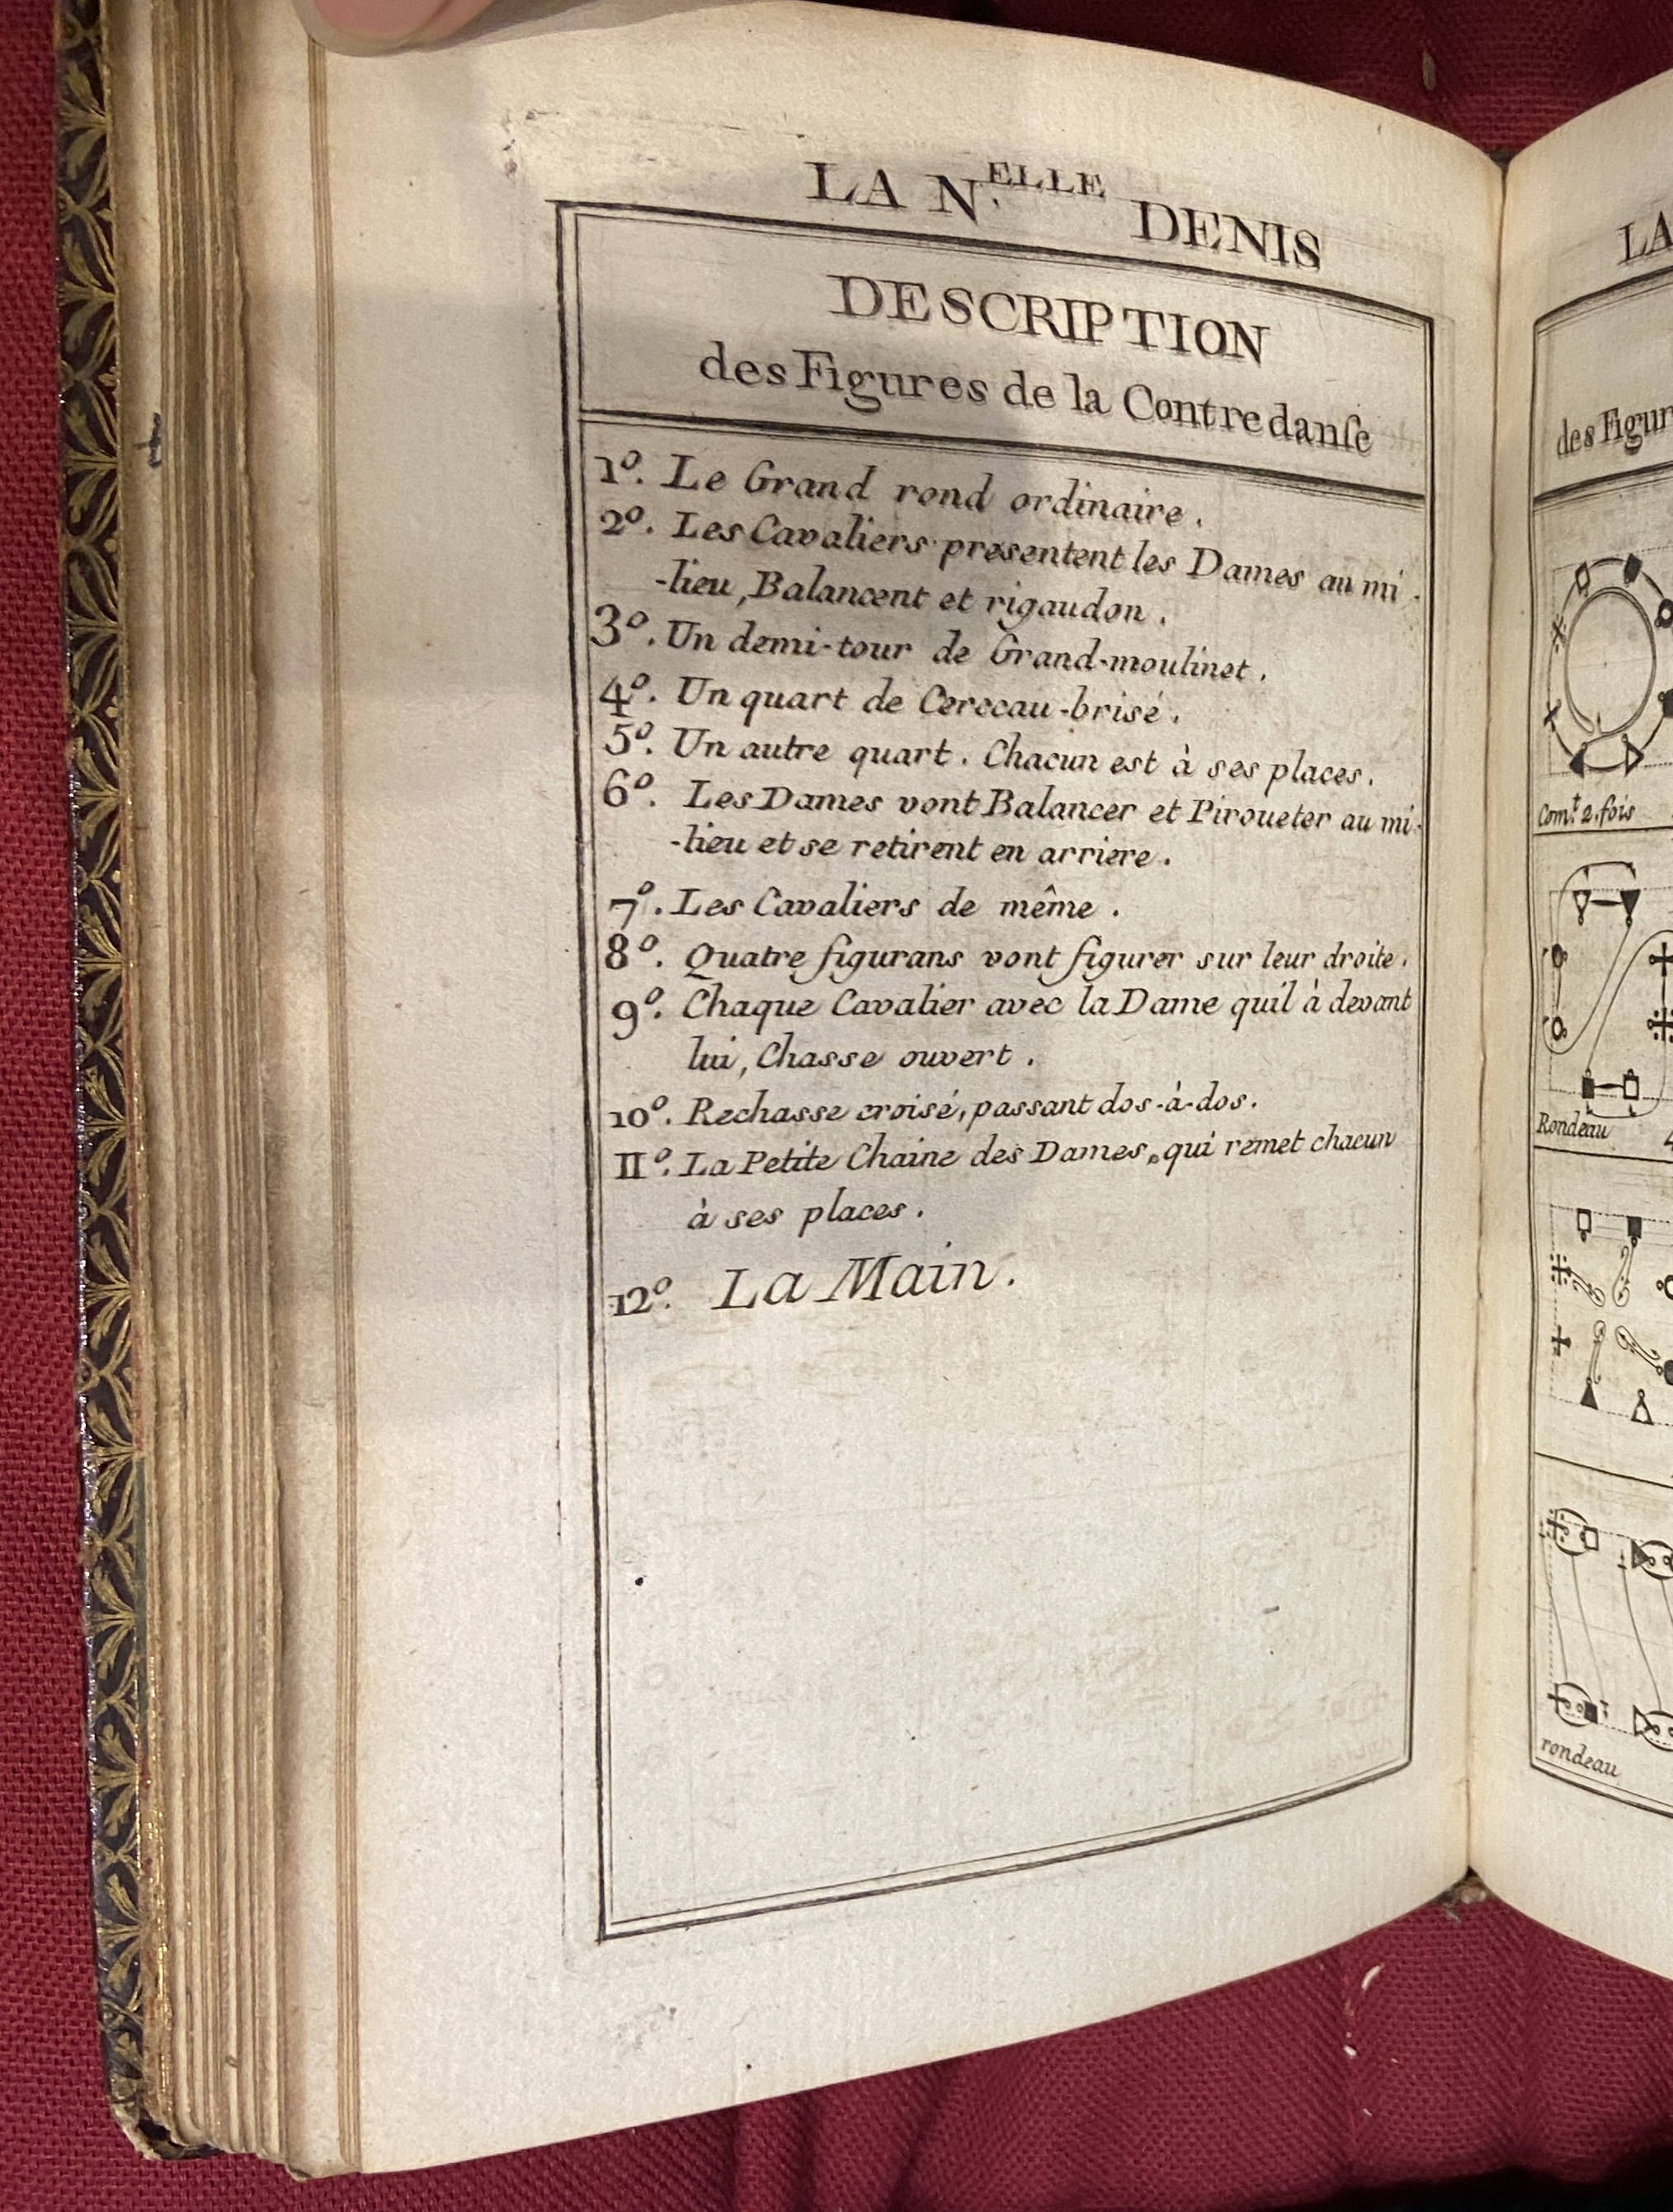 LA N.ELLE DENIS
DESCRIPTION
des Figures de la Contredanſe
1º. Le Grand rond ordinaire.
2º. Les Cavaliers presentent les Dames au mi-
-lieu, Balancent et rigaudon.
3º. Un demi-tour de Grand-moulinet.
4º. Un quart de Cerceau-brisé.
5º. Un autre quart. Chacun est à ses places.
6º. Les Dames vont Balancer et Piroueter au mi-
-lieu et se retirent en arriere.
7º. Les Cavaliers de même.
8º. Quatre figurans vont figurer sur leur droite.
9º. Chaque Cavalier avec la Dame quil à devant
lui, Chasse ouvert.
10º. Rechasse croisé, passant dos-à-dos.
II º. La Petite Chaine des Dames, qui remet chacun
à ses places.
12º. La Main.
LA
des Figur
Com.t 2. fois
Rondeau 4
rondeau